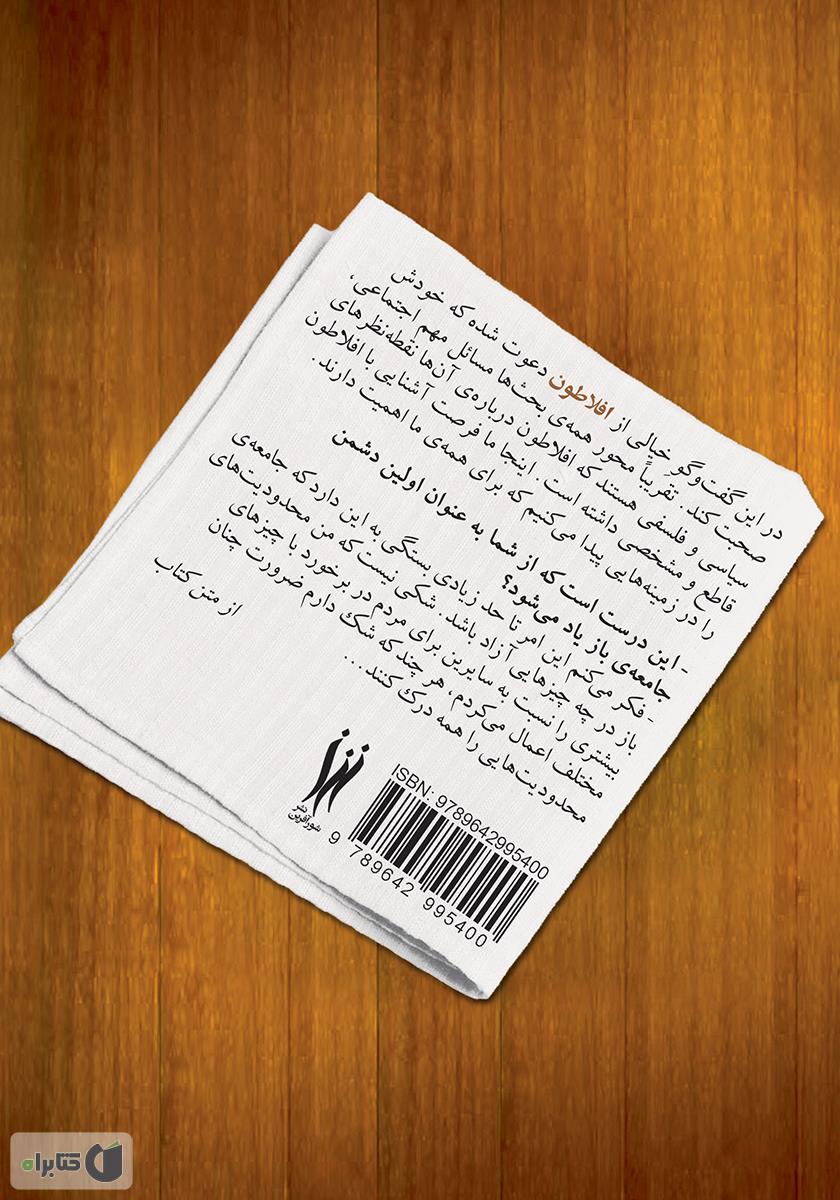 در این گفت‌وگوِ خیالی از افلاطون دعوت شده که خودش
صحبت کند. تقریباً محور همه‌ی بحث‌ها مسائل مهم اجتماعی،
سیاسی و فلسفی هستند که افلاطون درباره‌ی آن‌ها نقطه‌نظرهای
قاطع و مشخصی داشته است. اینجا ما فرصت آشنایی با افلاطون
را در زمینه‌هایی پیدا می‌کنیم که برای همه‌ی ما اهمیت دارند.
- این درست است که از شما به عنوان اولین دشمن
جامعه‌ی باز یاد می‌شود؟
- فکر می‌کنم این امر تا حد زیادی بستگی به این دارد که جامعه‌ی
باز در چه چیزهایی آزاد باشد. شکی نیست که من محدودیت‌های
بیشتری را نسبت به سایرین برای مردم در برخورد با چیزهای
مختلف اعمال می‌کردم، هر چند که شک دارم ضرورت چنان
محدودیت‌هایی را همه درک کنند...
از متن کتاب
نشر
شورآفرین
ISBN: 9789642995400
9 789642 995400
کتابراه